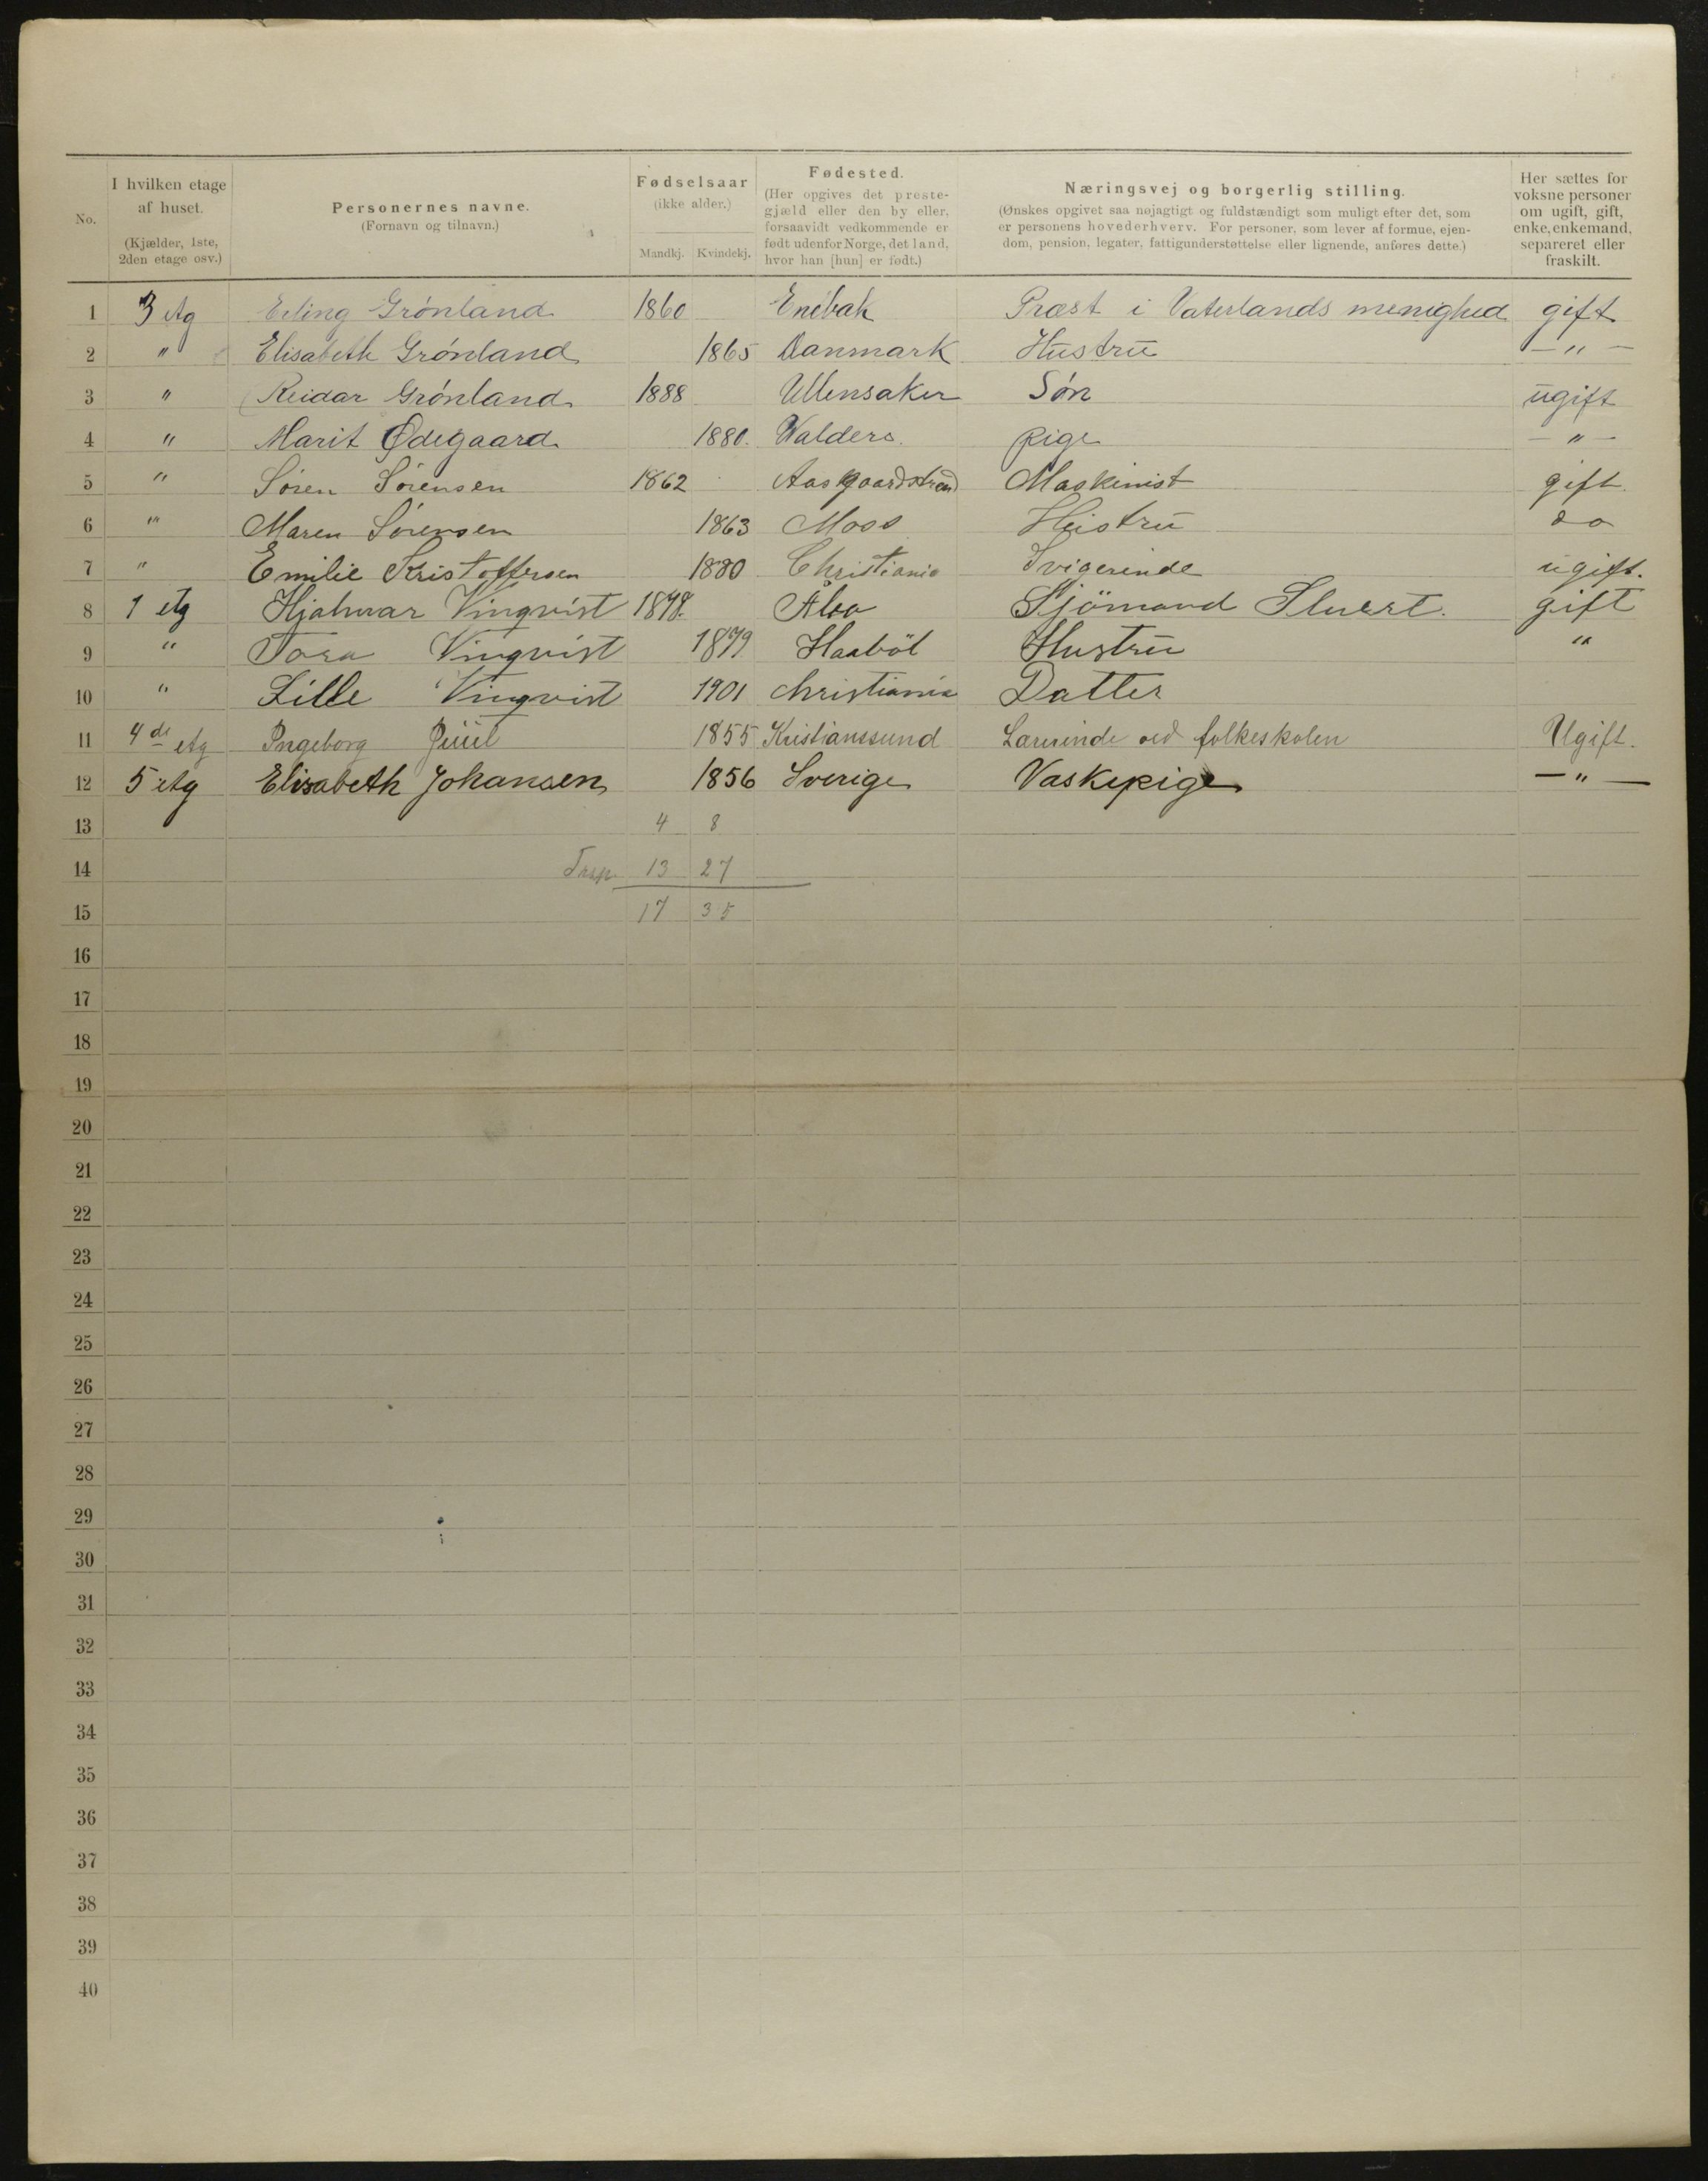 No.
I hvilken etage
af huset.
(Kjælder, 1ste,
2den etage osv.)
Personernes navne.
(Fornavn og tilnavn.)
Fødselsaar
(ikke alder.)
Mandkj. Kvindekj.
Fødested.
(Her opgives det preste-
gjæld eller den by eller,
forsaavidt vedkommende er
født udenfor Norge, det land,
hvor han [hun] er født.)
Næringsvej og borgerlig stilling.
(Ønskes opgivet saa nøjagtigt og fuldstændigt som muligt efter det, som
er personens hovederhverv. For personer, som lever af formue, ejen-
dom, pension, legater, fattigunderstøttelse eller lignende, anføres dette.)
Her sættes for
voksne personer
om ugift, gift,
enke, enkemand,
separeret eller
fraskilt.
1 3 etg Erling Grønland 1860 Enebak Præst i Vaterlands menighed gift
2 " Elisabeth Grønland 1865 Danmark Hustru — " —
3 " Reidar Grønland 1888 Ullensaker Søn ugift
4 " Marit Ødegaard 1880. Valders. pige — " —
5 " Søren Sørensen 1862 Aasgaardstrand Maskinist gift
6 " Maren Sørensen 1863 Moss Hustru do
7 " Emilie Kristoffersen 1880 Christiania Svigerinde ugift.
8 1 etg Hjalmar Vinqvist Sjömand gift
9 " Tora Vinqvist 1879 Haaböl Hustru "
10 " Lille Vinqvist 1901 Christiania Datter
11 4de etg Ingeborg Juul 1855 Kristianssund Lærerinde ved folkeskolen Ugift.
12 5 etg Elisabeth Johansen 1856 Sverige Vaskepige — " —
13 4 8
14 13 27
15 17 35
16
17
18
19
20
21
22
23
24
25
26
27
28
29
30
31
32
33
34
35
36
37
38
39
40